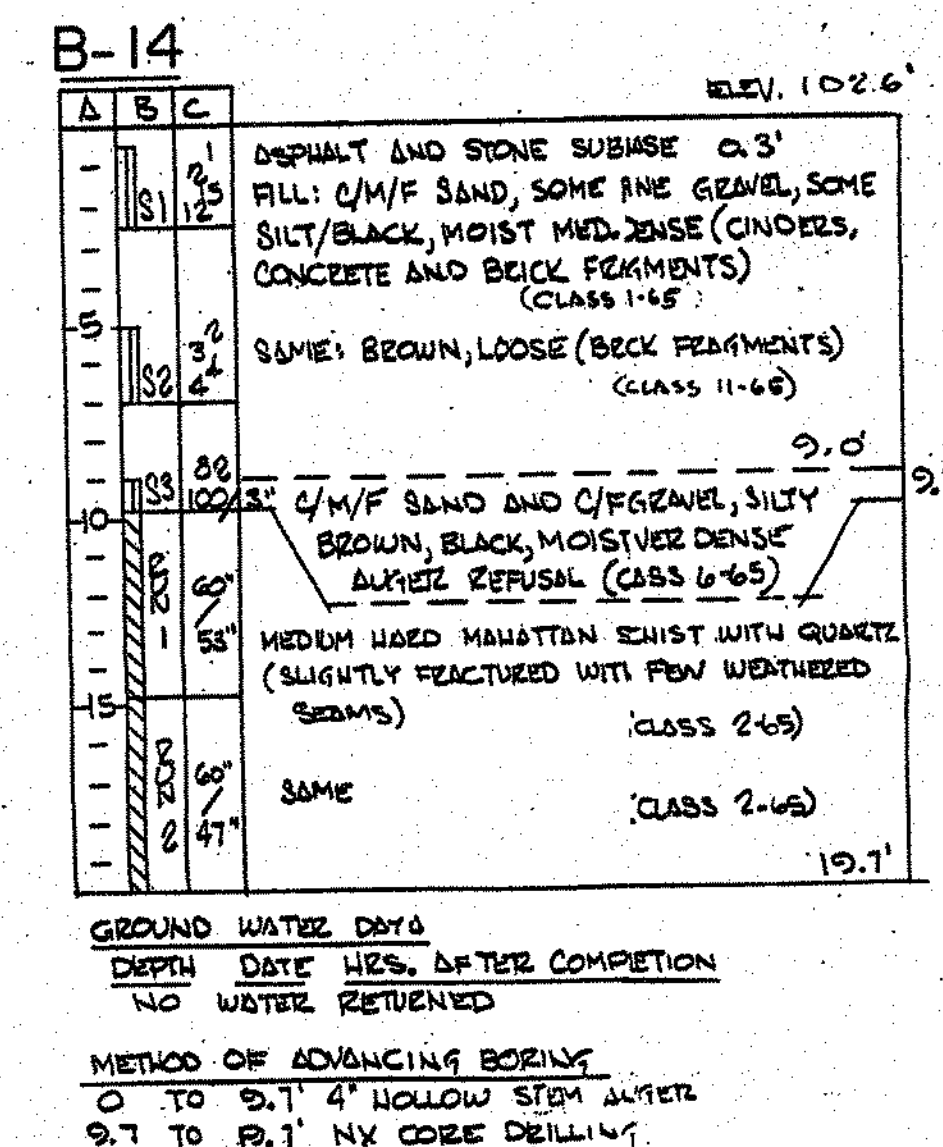 B-14
ELEV. 102.6'
A B C
ASPHALT AND STONE SUBBASE 0.3'
FILL: C/M/F SAND, SOME FINE GRAVEL, SOME
SILT/BLACK, MOIST MED. DENSE (CINDERS,
CONCRETE AND BRICK FRAGMENTS)
(CLASS 11-65
S1 1 2 5 12
5
SAME: BROWN, LOOSE (BRICK FRAGMENTS)
(CLASS 11-65)
S2 2 3 4 4
9.0'
S3 82 100/3"
9.
C/M/F SAND AND C/F GRAVEL, SILTY
10
BROWN, BLACK, MOIST VER DENSE
AUGER REFUSAL (CLASS 6-65)
RUN 1 60"/53"
MEDIUM HARD MAHATTAN SHIST WITH QUARTZ
(SLIGHTLY FRACTURED WITH FEW WEATHERED
SEAMS)
15
CLASS 2-65)
RUN 2 60"/47"
SAME
CLASS 2-65)
19.7'
GROUND WATER DATA
DEPTH DATE HRS. AFTER COMPLETION
NO WATER RETURNED
METHOD OF ADVANCING BORING
0 TO 9.7' 4" HOLLOW STEM AUGER
9.7 TO 19.7' NX CORE DRILLING